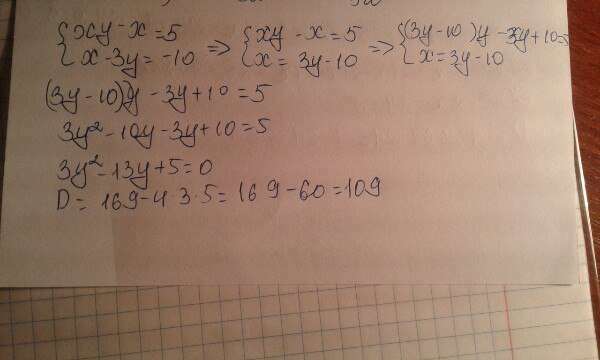 {xy - x = 5 => {xy - x = 5 => {(3y-10)y - 3y + 10 = 5
{x - 3y = -10 {x = 3y - 10 {x = 3y - 10
(3y - 10)y - 3y + 10 = 5
3y² - 10y - 3y + 10 = 5
3y² - 13y + 5 = 0
D = 169 - 4·3·5 = 169 - 60 = 109